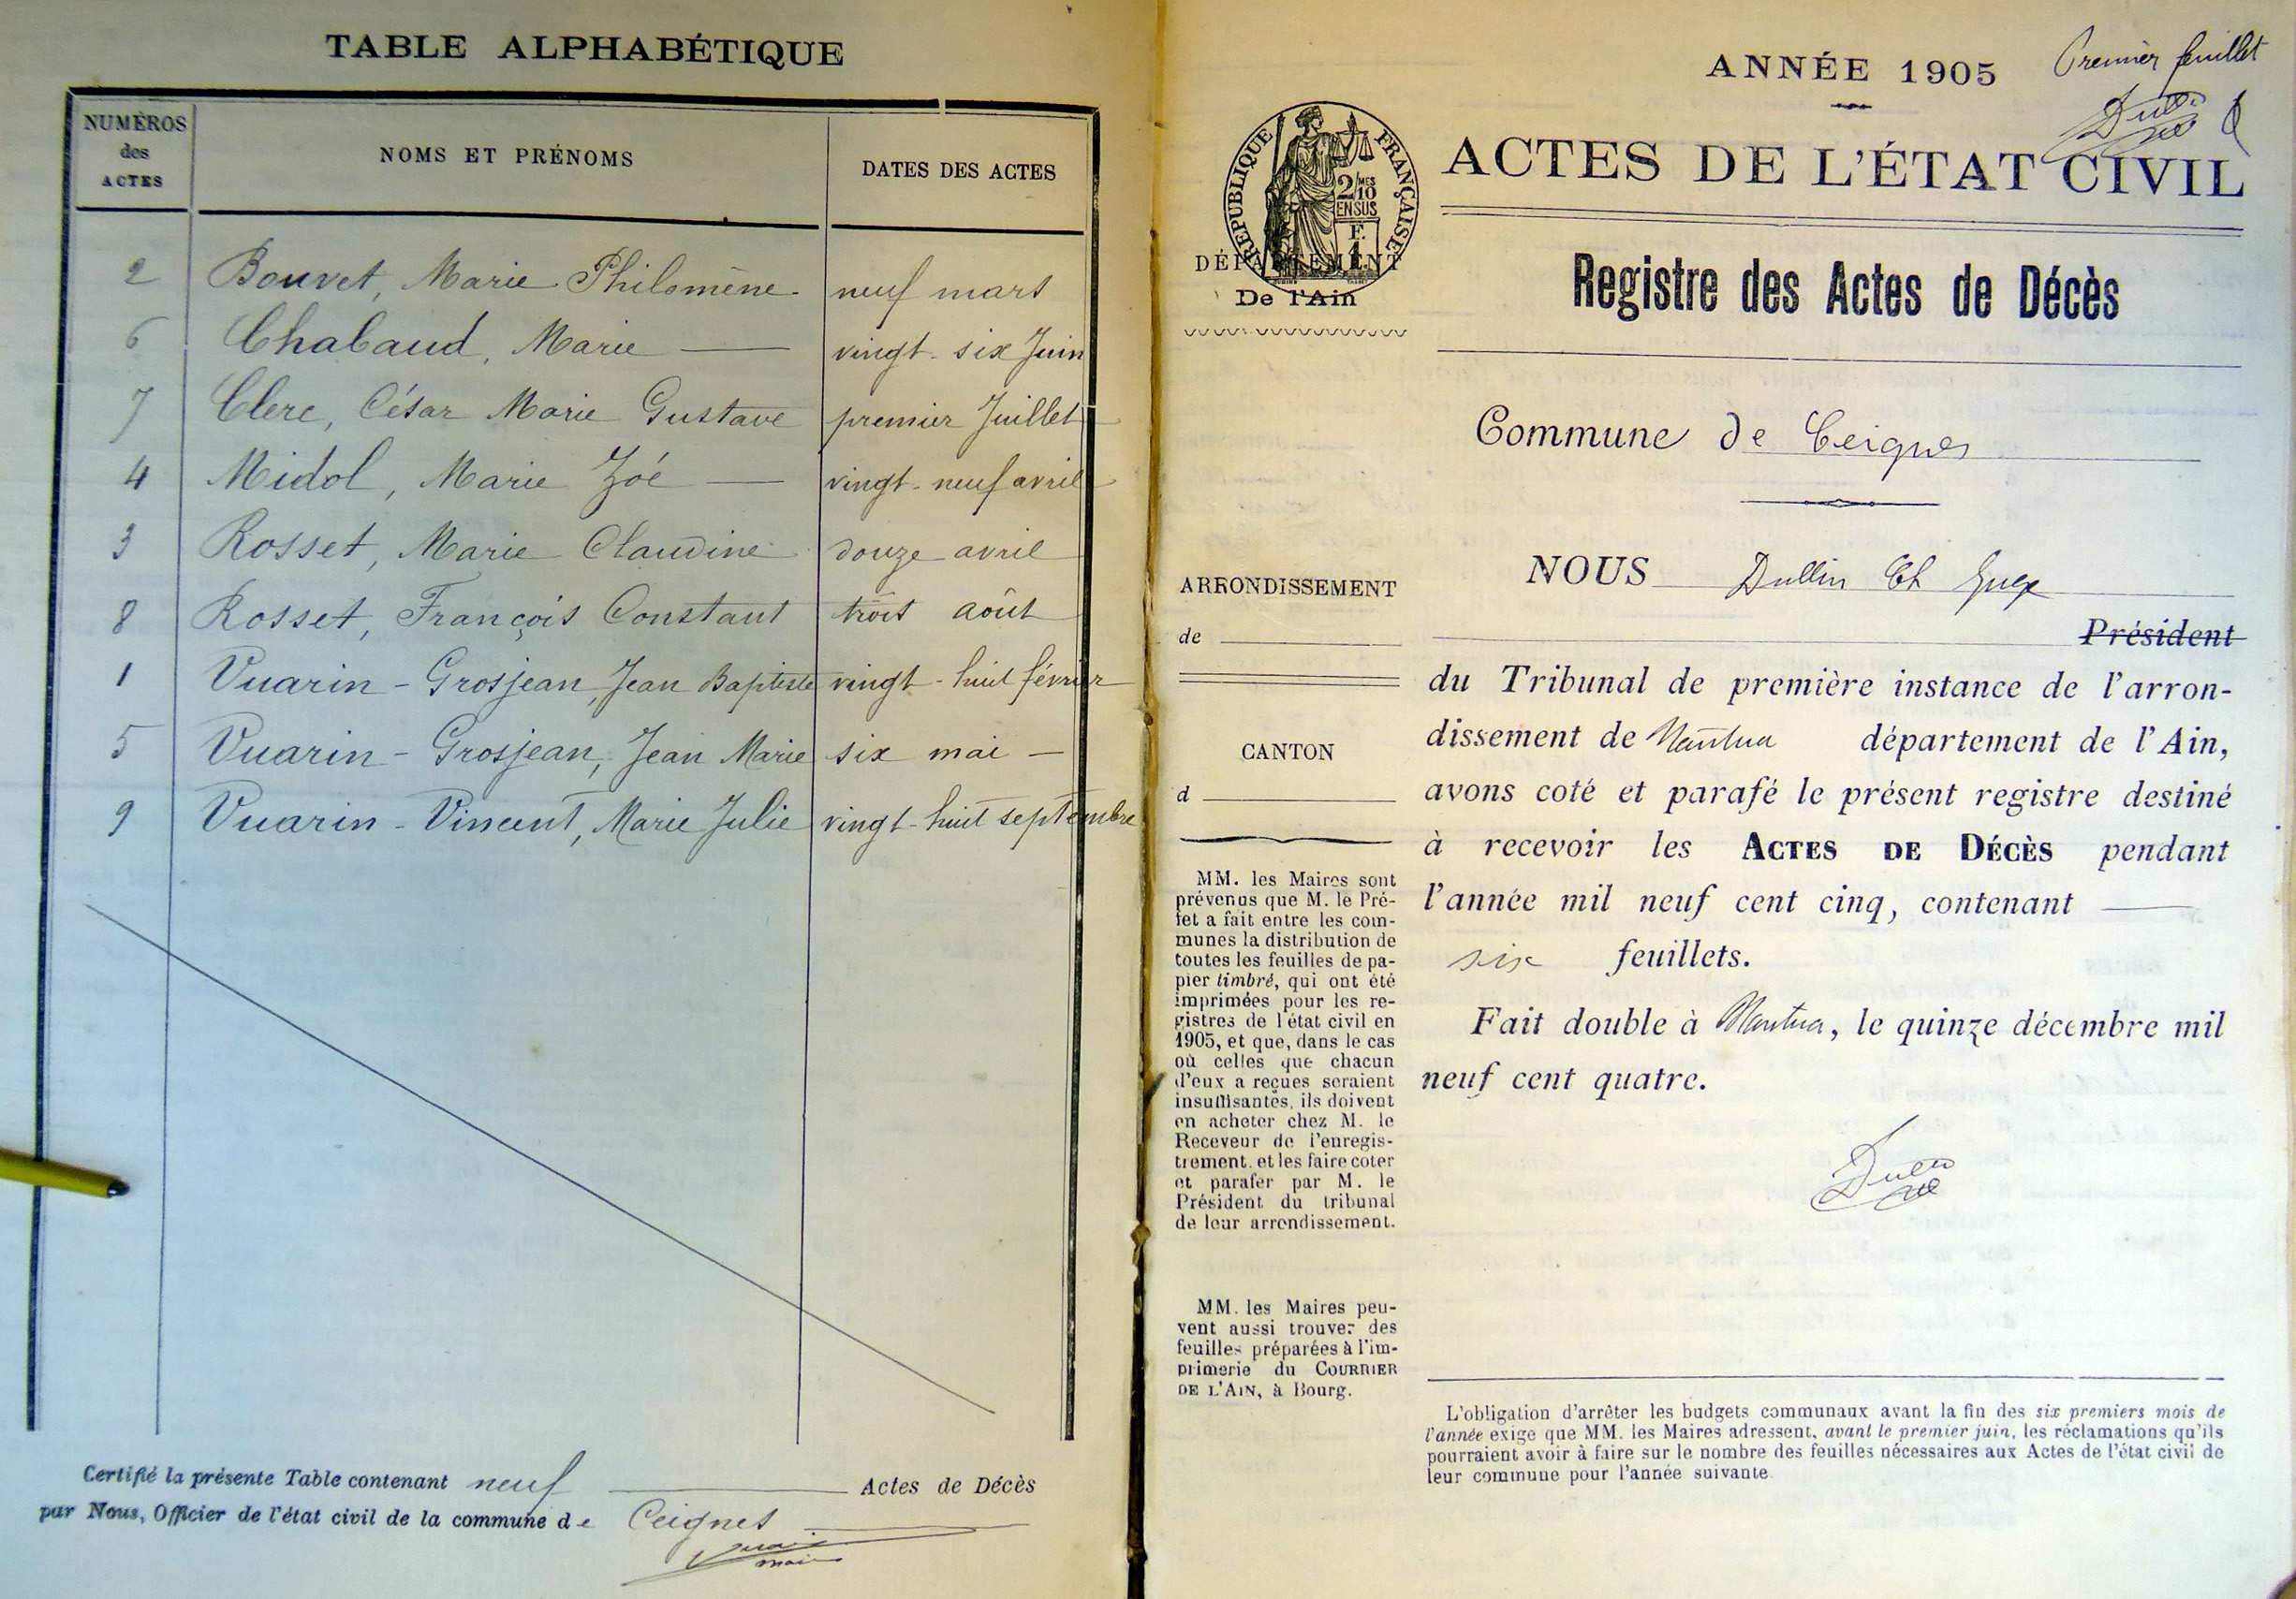 TABLE ALPHABÉTIQUE
NUMÉROS
des
ACTES
NOMS ET PRÉNOMS
DATES DES ACTES
2 Bouvet, Marie Philomène neuf mars
6 Chabaud, Marie — vingt-six Juin
7 Clerc, César Marie Gustave premier Juillet
4 Midol, Marie Zoé — vingt-neuf avril
3 Rosset, Marie Claudine douze avril
8 Rosset, François Constant trois août
1 Vuarin-Grosjean, Jean Baptiste vingt-huit février
5 Vuarin-Grosjean, Jean Marie six mai —
9 Vuarin-Vincent, Marie Julie vingt-huit septembre
Certifié la présente Table contenant neuf Actes de Décès
par Nous, Officier de l'état civil de la commune de Ceignes
maire
ANNÉE 1905
Premier feuillet
ACTES DE L'ÉTAT CIVIL
RÉPUBLIQUE FRANÇAISE
2/10 MES
EN SUS
F.
1
DÉPARTEMENT
De l'Ain
Registre des Actes de Décès
Commune de Ceignes
ARRONDISSEMENT
de
CANTON
d
MM. les Maires sont
prévenus que M. le Pré-
fet a fait entre les com-
munes la distribution de
toutes les feuilles de pa-
pier timbré, qui ont été
imprimées pour les re-
gistres de l'état civil en
1905, et que, dans le cas
où celles que chacun
d'eux a reçues seraient
insuffisantes, ils doivent
en acheter chez M. le
Receveur de l'enregis-
trement, et les faire coter
et parafer par M. le
Président du tribunal
de leur arrondissement.
MM. les Maires peu-
vent aussi trouver des
feuilles préparées à l'im-
primerie du COURRIER
DE L'AIN, à Bourg.
NOUS Dullin
Président
du Tribunal de première instance de l'arron-
dissement de Nantua département de l'Ain,
avons coté et parafé le présent registre destiné
à recevoir les ACTES DE DÉCÈS pendant
l'année mil neuf cent cinq, contenant —
six feuillets.
Fait double à Nantua, le quinze décembre mil
neuf cent quatre.
L'obligation d'arrêter les budgets communaux avant la fin des six premiers mois de
l'année exige que MM. les Maires adressent, avant le premier juin, les réclamations qu'ils
pourraient avoir à faire sur le nombre des feuilles nécessaires aux Actes de l'état civil de
leur commune pour l'année suivante